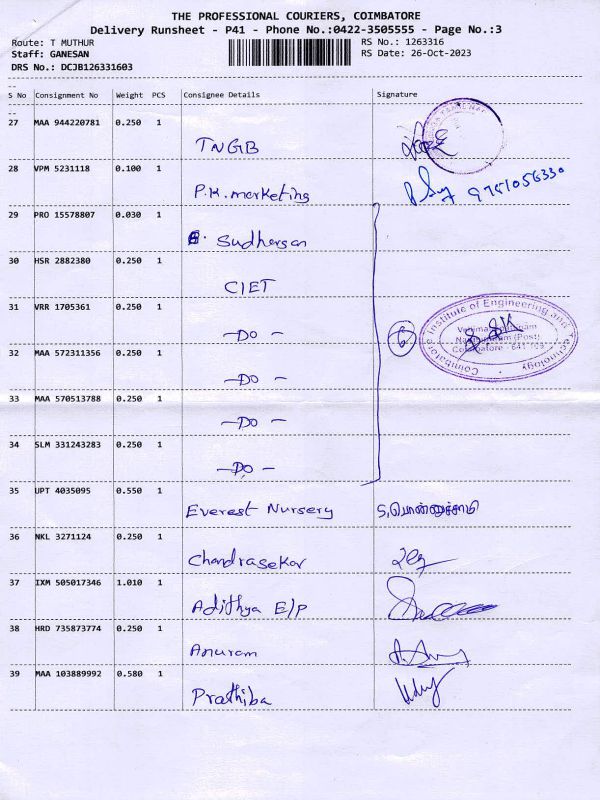 THE PROFESSIONAL COURIERS, COIMBATORE
Delivery Runsheet - P41 - Phone No.:0422-3505555 - Page No.:3
Route: T MUTHUR
RS No.: 1263316
Staff: GANESAN
RS Date: 26-Oct-2023
DRS No.: DCJB126331603
S No Consignment No Weight PCS Consignee Details Signature
27 MAA 944220781 0.250 1
TNGB
28 VPM 5231118 0.100 1
P.K. marketing 9751056330
29 PRO 15578807 0.030 1
Sudharsan
30 HSR 2882380 0.250 1
CIET
31 VRR 1705361 0.250 1
-DO- 6
Coimbatore Institute of Engineering and Technology
(Post)
Coimbatore - 641 109
32 MAA 572311356 0.250 1
-DO-
33 MAA 570513788 0.250 1
-DO-
34 SLM 331243283 0.250 1
-DO-
35 UPT 4035095 0.550 1
Everest Nursery S.பொன்னுச்சாமி
36 NKL 3271124 0.250 1
Chandrasekar
37 IXM 505017346 1.010 1
Adithya E/P
38 HRD 735873774 0.250 1
Anuram
39 MAA 103889992 0.580 1
Prathiba